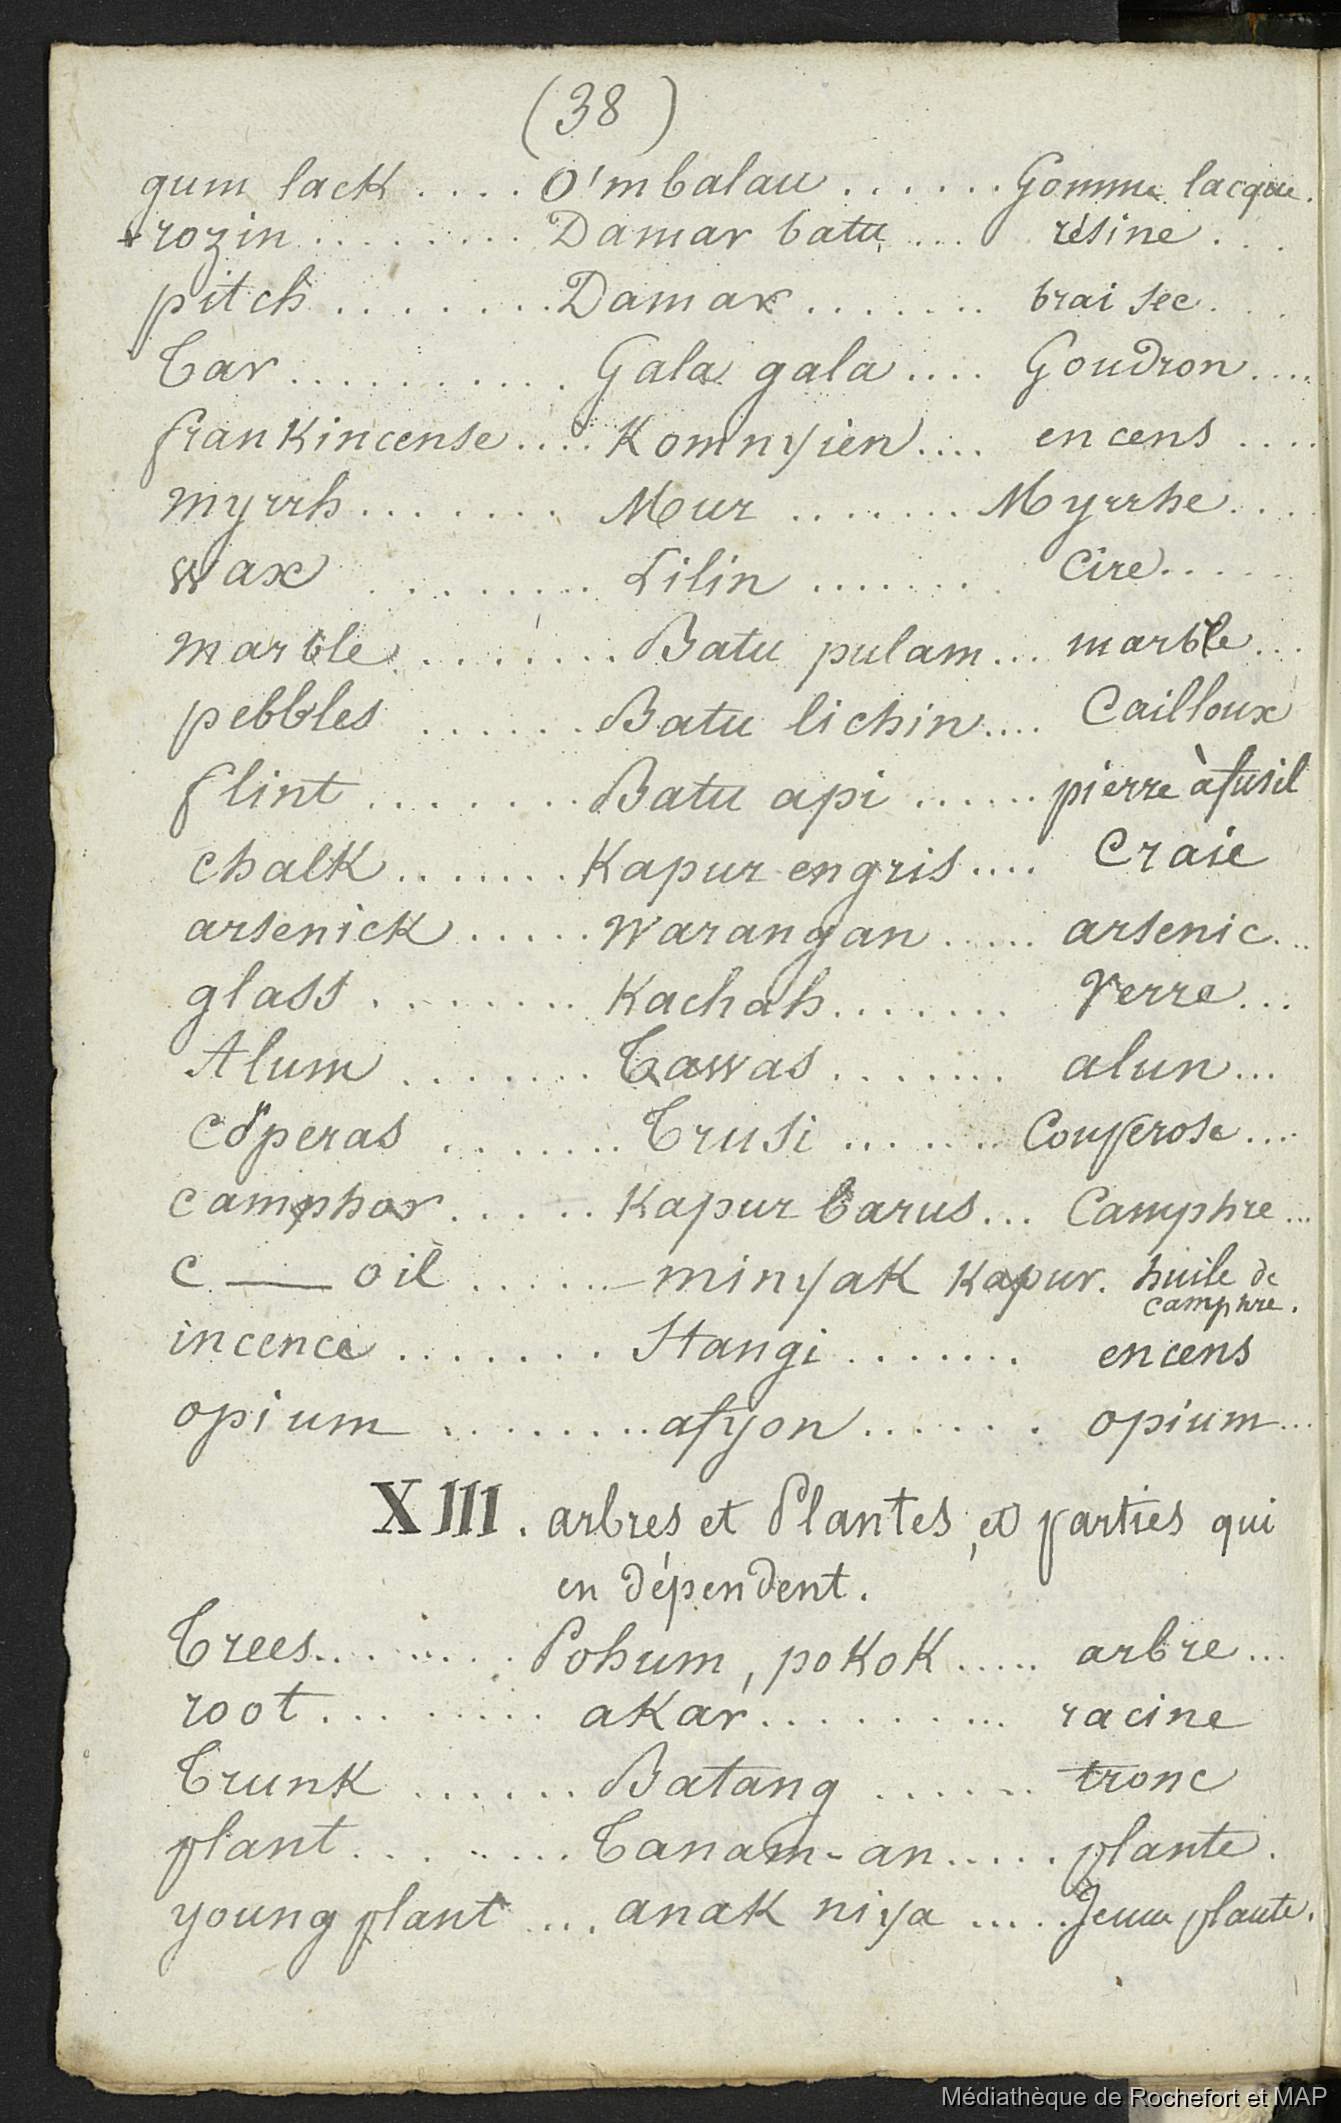 (38)
gum lack .... O'mbalau ...... Gomme lacque.
* rozin ........ Damar batu ... résine ...
pitch ........ Damar ....... brai sec ...
Tar ........... Gala gala .... Goudron ....
frankincense .... Komnyien .... encens ....
myrrh ........ Mur ....... Myrrhe ....
wax ........ Lilin ....... Cire .....
marble ........ Batu pulam ... marble ...
pebbles ...... Batu lichin .... Cailloux
flint ........ Batu api ...... pierre à fusil
chalk ....... Kapur engris .... Craie
arsenick ..... Warangan ..... arsenic ...
glass ........ Kachah ....... Verre ...
Alum ....... Tawas ....... alun ...
Copperas ....... Trusi ....... Couperose ....
Camphor ...... Kapur barus ... Camphre ...
C —— oil ...... minyak Kapur. huile de
camphre.
incence ........ Stangi ....... encens
opium ........ afyon ...... opium ...
XIII. arbres et Plantes, et parties qui
en dépendent.
Trees ....... Pohum, pokok ..... arbre ...
root ........ akar ......... racine
Trunk ...... Batang ...... tronc
plant ........ Tanam-an ..... plante.
young plant .... anak niya ..... Jeune plante.
Médiathèque de Rochefort et MAP